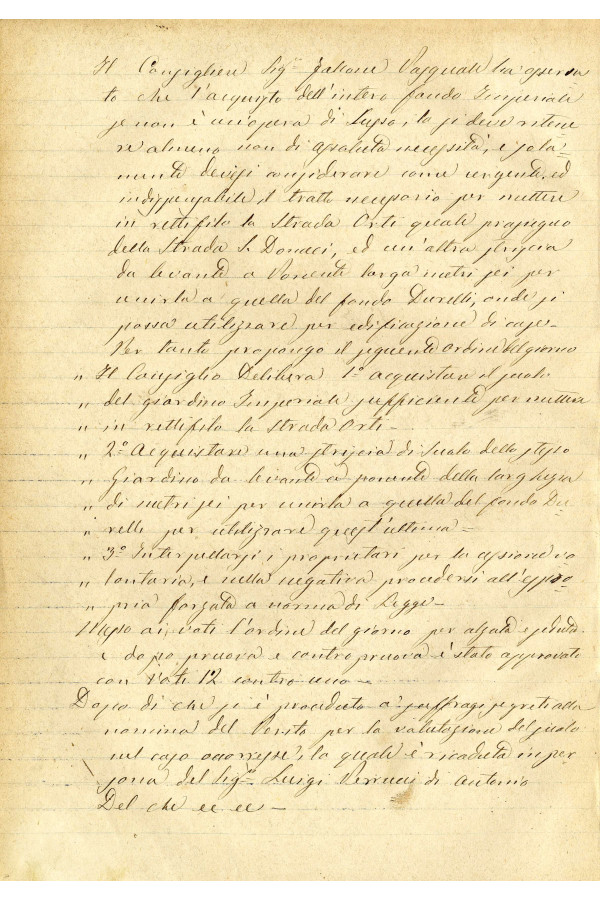 Il Consigliere Sig.r Falcone Pasquale ha osserva
to che l'acquisto dell'intero fondo Imperiale
se non è un'opera di lusso, la si deve ritene
re almeno non di assoluta necessità, e sola-
mente devesi considerare come urgente, ed
indispensabile, il tratto necessario per mettere
in rettifilo la Strada Orti quale prosieguo
della Strada S. Donaci, ed un'altra striscia
da levante a Ponente larga metri sei per
unirla a quella del fondo Durelli, onde si
possa utilizzare per edificazione di case-
Per tanto propongo il seguente ordine del giorno
„ Il Consiglio Delibera 1° acquistare il suolo
„ del giardino Imperiale sufficiente per mettere
„ in rettifilo la strada Orti-
„ 2° Acquistare una striscia di Suolo dello stesso
„ Giardino da levante a ponente della larghezza
„ di metri sei per unirla a quella del fondo Du
„ relli per utilizzare quest'ultima-
„ 3° Interpellarsi i proprietari per la cessione vo
„ lontaria, e nella negativa procedersi all'esspro-
„ pria forzata a norma di Legge-
Messo ai voti l'ordine del giorno per alzata e seduta
e dopo pruova e contropruova è stato approvato
con voti 12 contro uno-
Dopo di che si è proceduto a suffragi segreti alla
nomina del Perito per la valutazione del suolo
nel caso occorresse, la quale è ricaduta in per
sona del Sig.r Luigi Verrucci di Antonio
Del che ec ec-